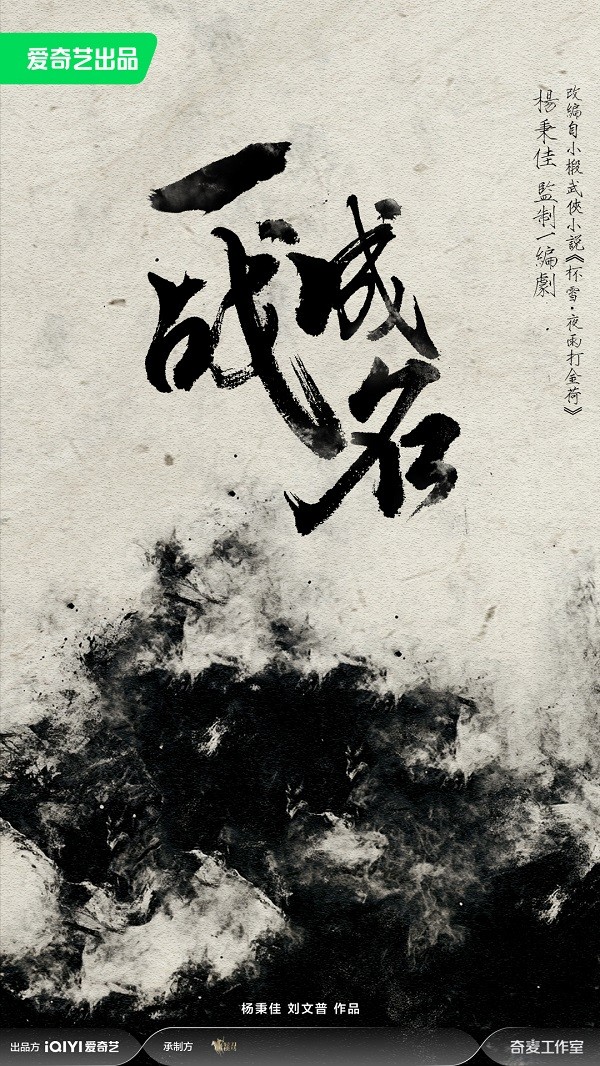 爱奇艺出品
改编自小椴武俠小説《杯雪·夜雨打金荷》
楊秉佳 監制 編劇
一战成名
杨秉佳 刘文普 作品
出品方 iQIYI 爱奇艺
承制方
奇麦工作室